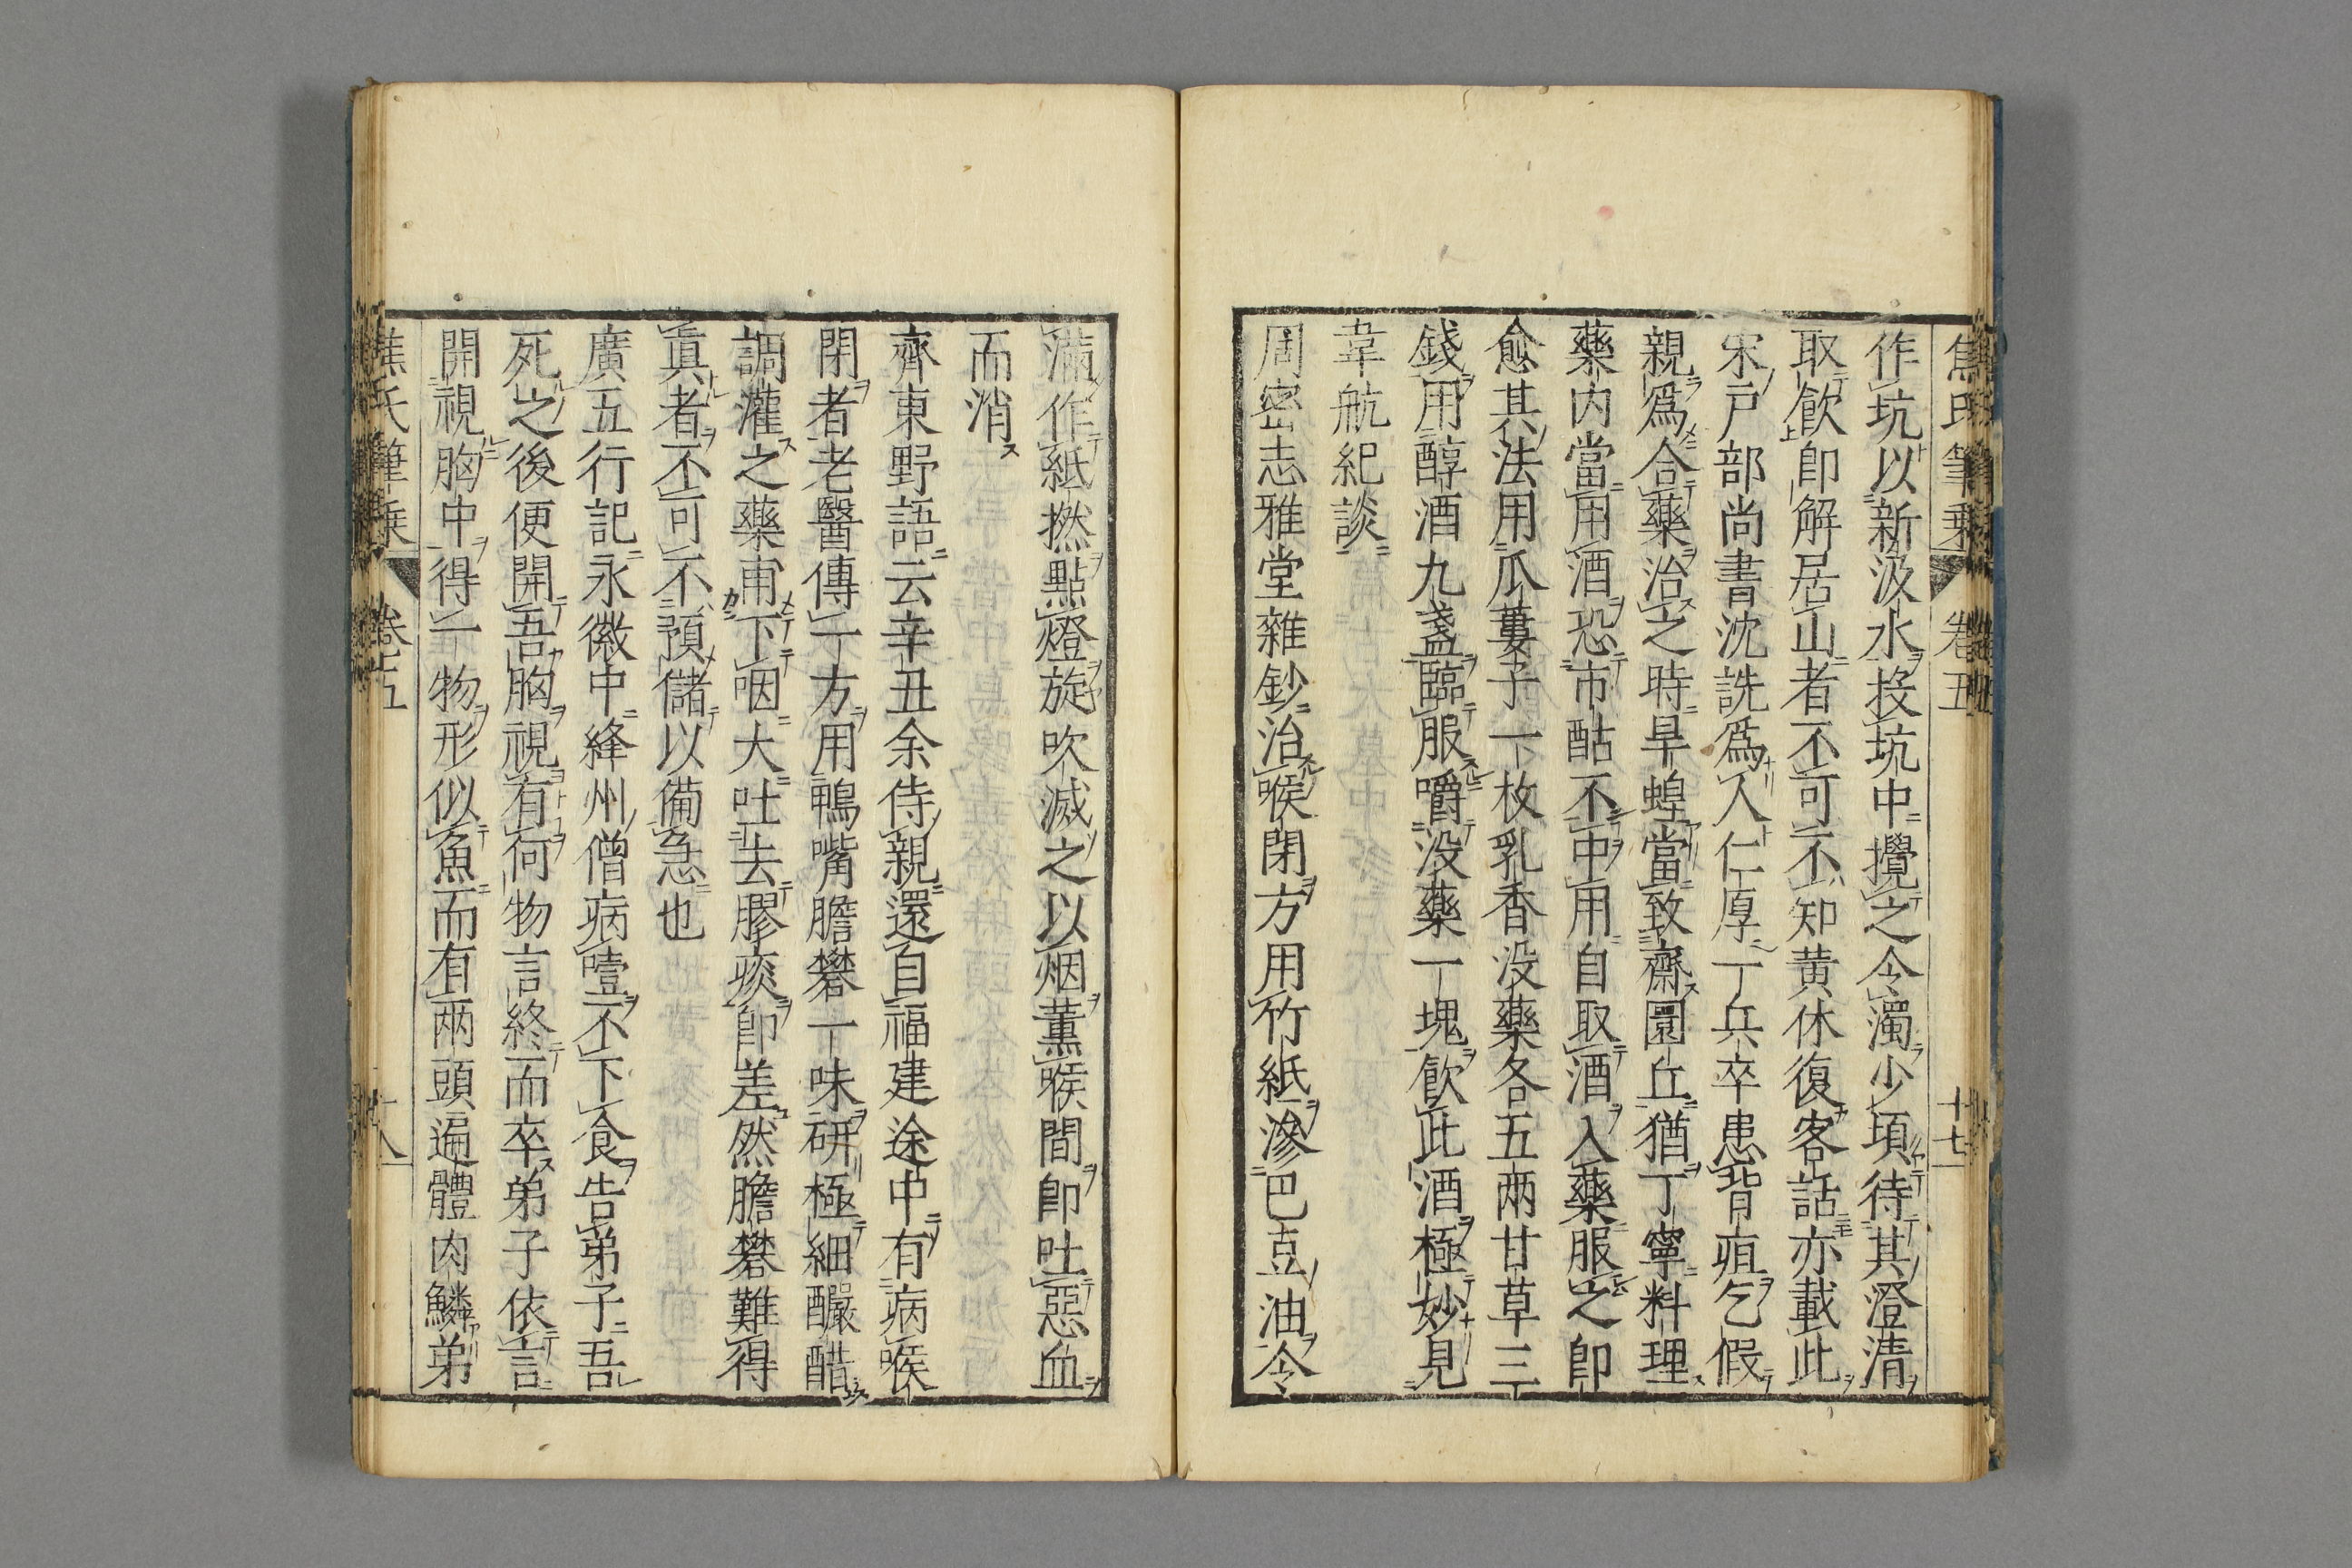 焦氏筆乘 卷五 十七
作坑以新汲水投坑中攪之令濁少頃待其澄清
取飲卽解居山者不可不知黄休復客話亦載此
宋戸部尚書沈詵爲人仁厚一兵卒患背疽乞假
親爲合藥治之時旱蝗當致齋圜丘猶丁寧料理
藥内當用酒恐市酤不中用自取酒入藥服之卽
愈其法用瓜蔞子一枚乳香没藥各五两甘草三
錢用醇酒九盞臨服嚼没藥一塊飲此酒極妙見
韋航紀談
周密志雅堂雜鈔治喉閉方用竹紙滲巴豆油令
滿作紙撚點燈旋吹滅之以烟薰喉間卽吐惡血
而消
齊東野語云辛丑余侍親還自福建途中有病喉
閉者老醫傳一方用鴨嘴膽礬一味研極細釅醋
調灌之藥甫下咽大吐去膠痰卽差然膽礬難得
眞者不可不預儲以備急也
廣五行記永徽中絳州僧病噎不下食告弟子吾
死之後便開吾胸視有何物言終而卒弟子依言
開視胸中得一物形似魚而有兩頭遍體肉鱗弟
焦氏筆乘 卷五 十八